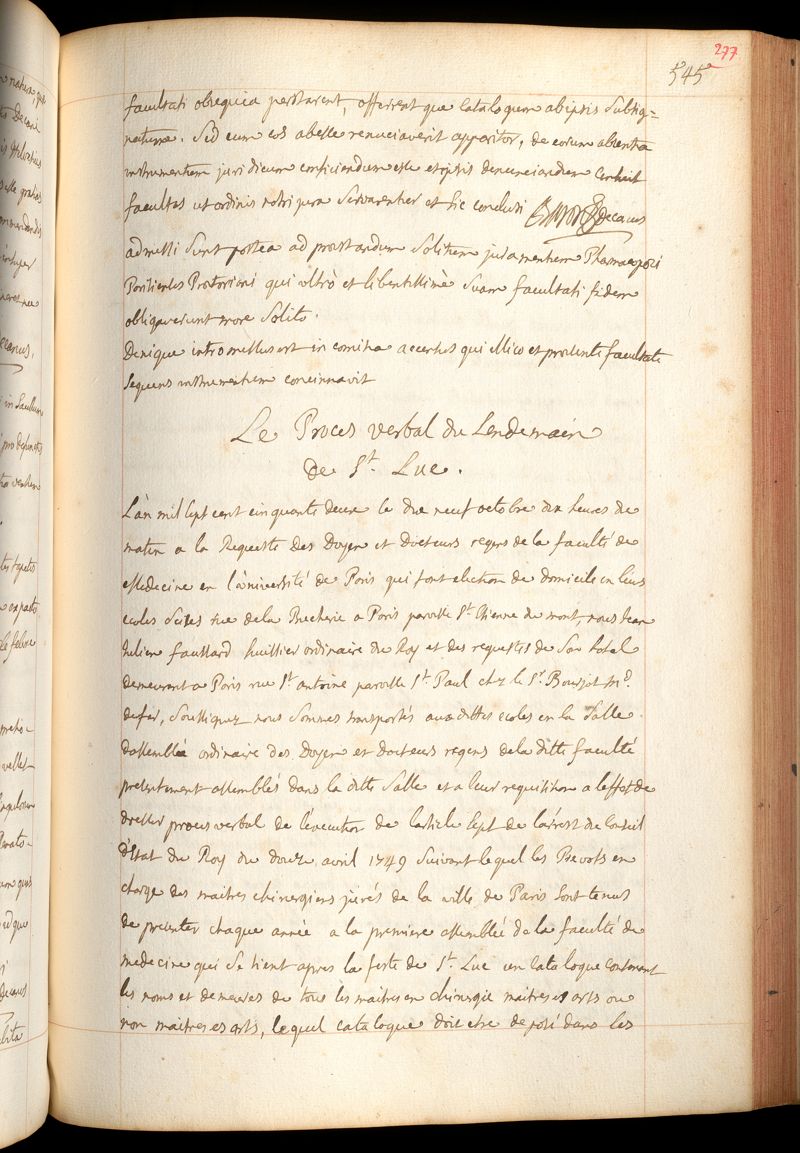 277
545
facultati obsequia præstarent, offerrent que catalogum ab ipsis subsig-
natum. Sed eum eos abesse renunciaverit apparitor, de eorum absentia
instrumentum juridicum conficiendum esse et ipsis denunciandum censuit
facultas ut ordinis nostri jura servarentur et sic conclusi decanus
admissi sunt postea ad præstandum solitum juramentum Pharmacopæi
Parisienses Prætoriani qui ultrò et libentissimè suam facultati fidem
obligaverunt more solito.
Denique intromissus est in comitia accersitus qui illico et præsente facultate
sequens instrumentum concinnavit
Le Proces verbal du Lendemain
de St. Luc.
L'àn mil sept cent cinquante deux le dix neuf octobre dix heures du
matin a la Requeste des Doyen et Docteurs regens de la faculté de
Medecine en l'université de Paris qui font election de domicile en leurs
ecoles scises rue de la Bucherie a Paris paroisse St. Etienne du mont, nous Jean
Julien faussard huissier ordinaire du Roy et des requestes de son hotel
demeurant a Paris rue St. antoine paroisse St. Paul chez le Sr. Bourjot Md.
de fer, soussigné nous sommes transportés aux dittes ecoles en la salle
d'assemblée ordinaire des Doyen et docteurs regens de la ditte faculté
presentement assemblés dans la ditte salle et a leur requisition a l'effet de
dresser procès verbal de l'execution de l'article sept de l'arrest du Conseil
d'Etat du Roy du douze avril 1749 suivant lequel les Prevots en
charge des maitres chirurgiens jurés de la ville de Paris sont tenus
de presenter chaque année a la premiere assemblée de la faculté de
medecine qui se tient apres la feste de St. Luc un catalogue contenant
les noms et demeures de tous les maitres en chirurgie maitres es arts ou
non maitres es arts, lequel catalogue doit etre deposé dans les